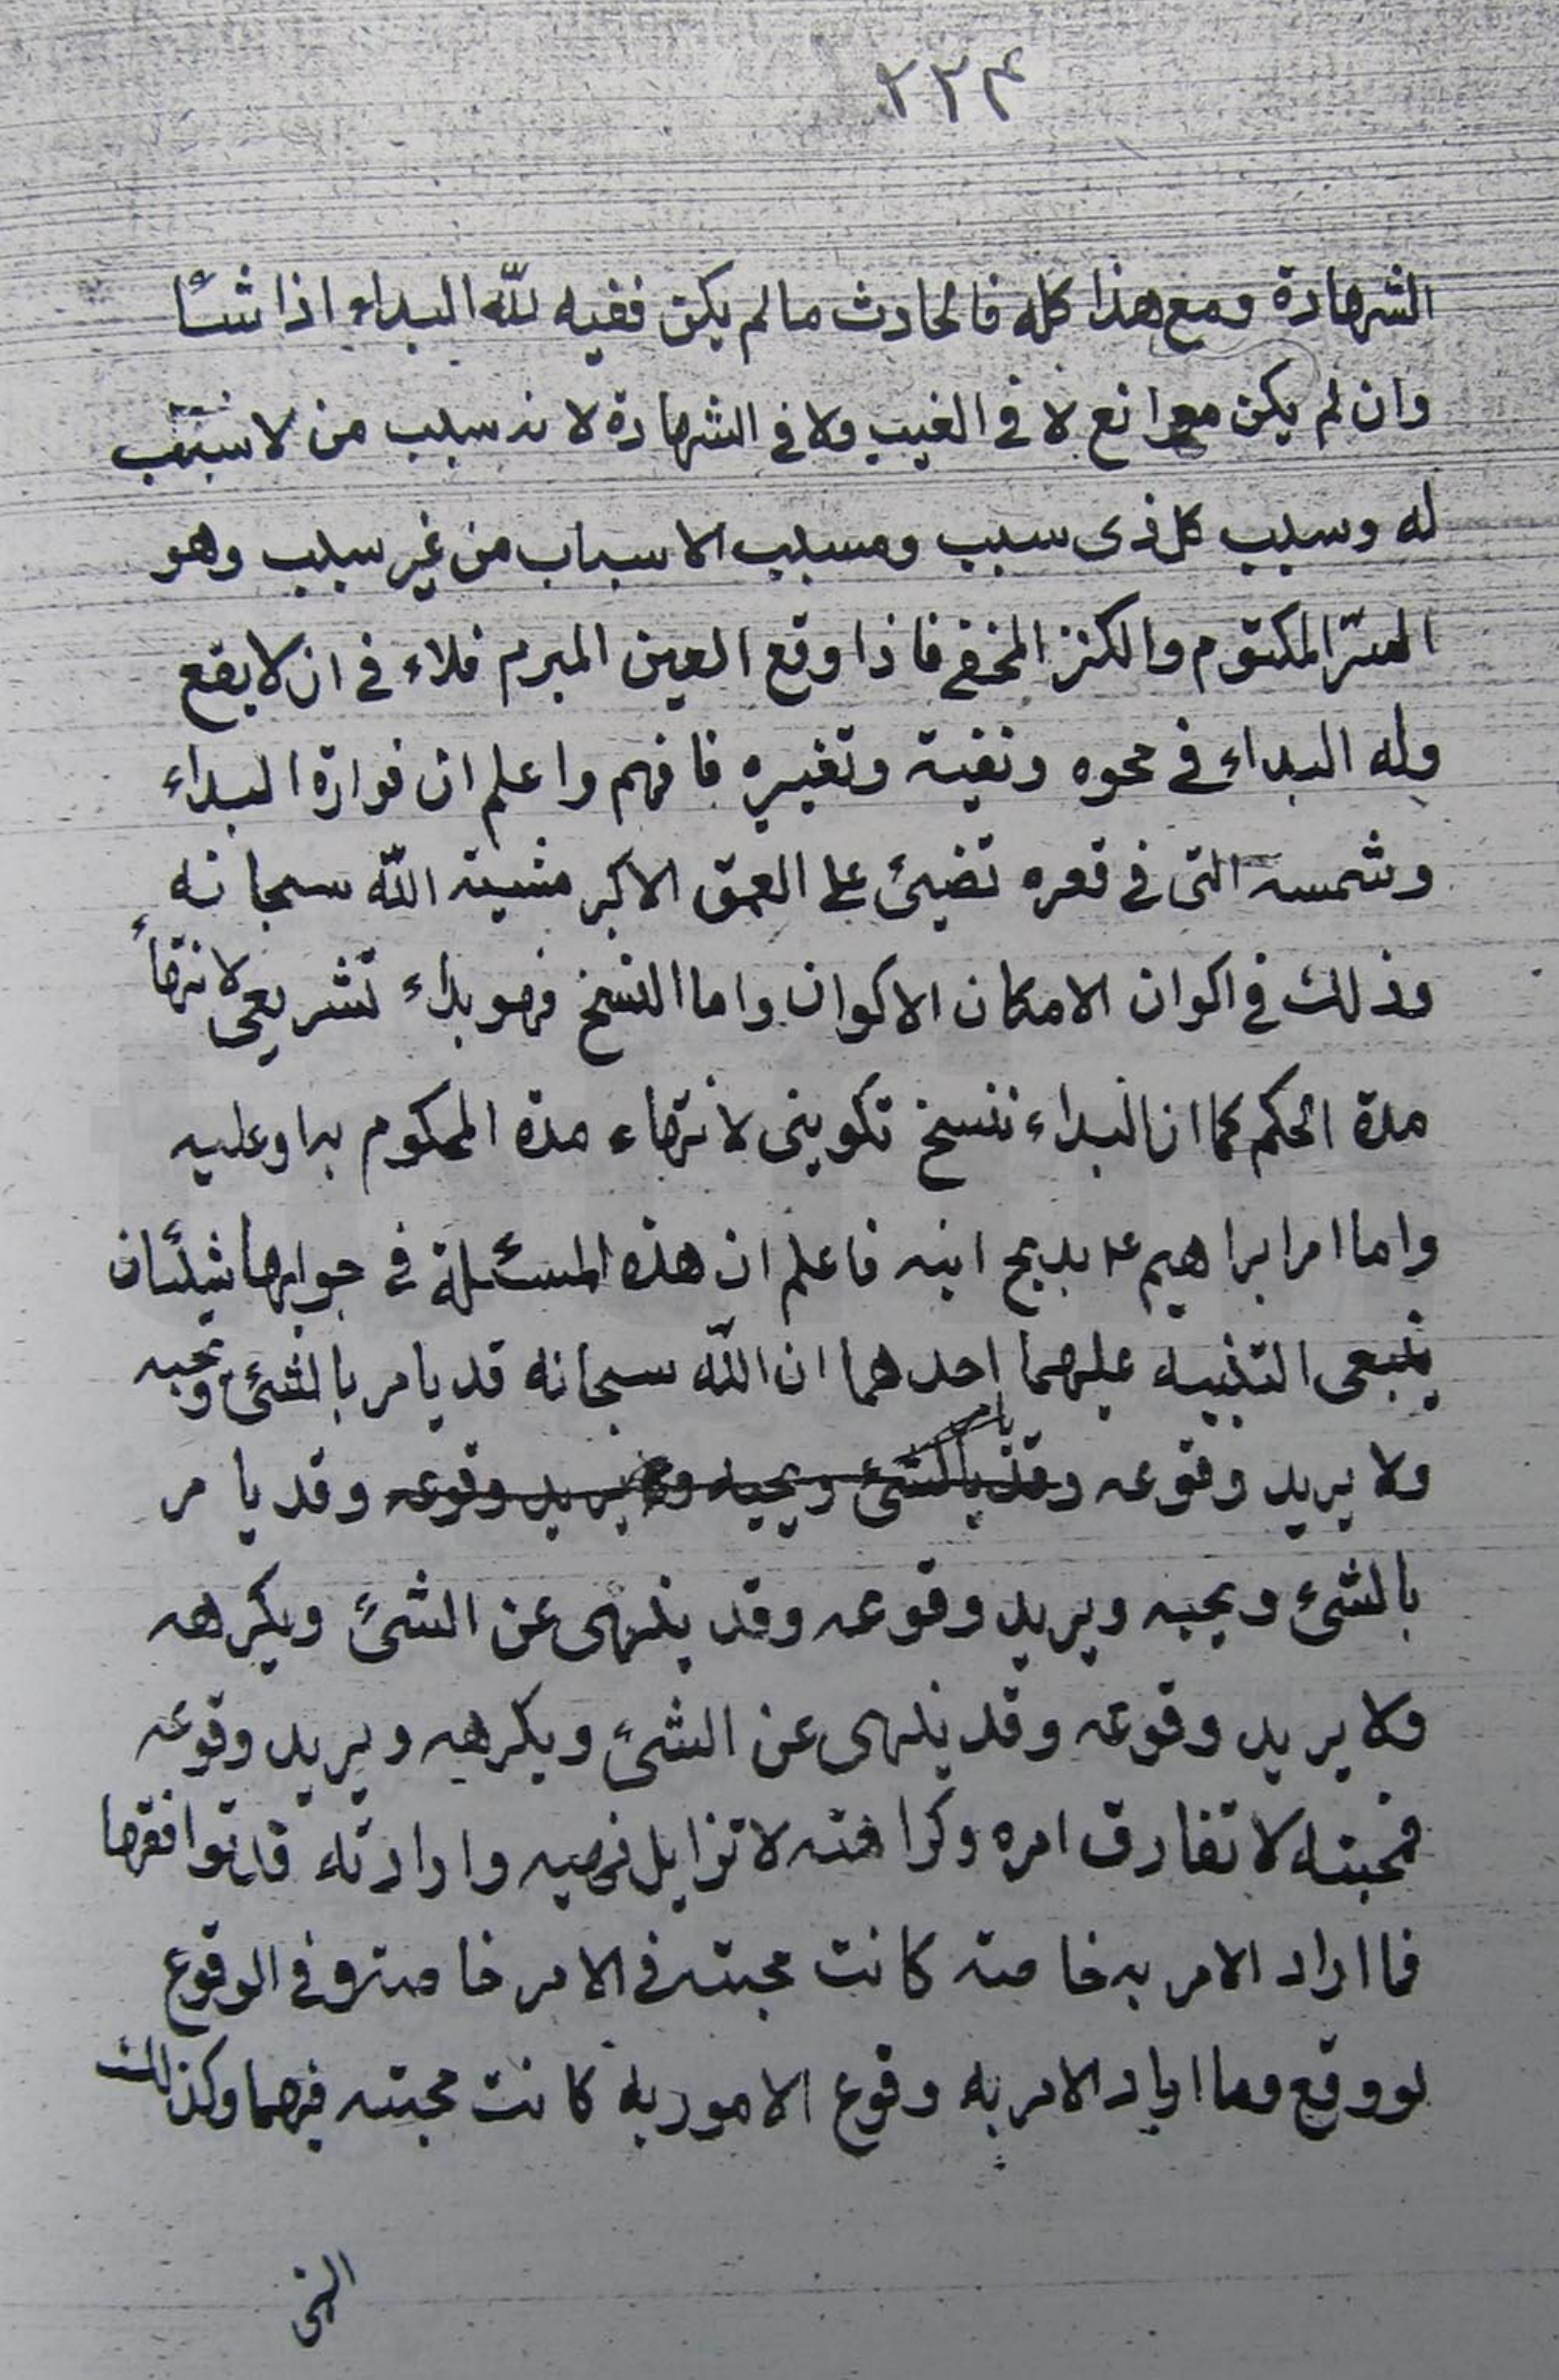 ٢٣٤
الشهادة ومع هذا كله فالحادث ما لم يكن ففيه لله البداء اذا شاء
وان لم يكن موانع لا في الغيب ولا في الشهادة لانه سبب من لا سبب
له وسبب كل ذى سبب ومسبب الاسباب من غير سبب وهو
السّر المكتوم والكنز المخفى فاذا وقع العين المبرم فلاء فى ان لا يقع
وله البداء فى محوه ونفيه وتغييره فافهم واعلم ان فوارة البداء
وشمسه التى فى قعره تضيئ على العمق الاكبر مشية الله سبحانه
وذلك فى اكوان الامكان الاكوان واما النسخ فهو بداء تشريعى لانتهاء
مدة الحكم كما ان البداء ننسخ تكوينى لانتهاء مدة المحكوم به او عليه
واما امر ابراهيم ع بذبح ابنه فاعلم ان هذه المسئلة فى جوابها شيئان
ينبغى التنبيه عليهما احدهما ان الله سبحانه قد يامر بالشئ ويحبه
ولا يريد وقوعه وقد يامر بالشئ ويحبه ولا يريد وقوعه وقد يامر
بالشئ ويحبه ويريد وقوعه وقد ينهى عن الشئ ويكرهه
ولا يريد وقوعه وقد ينهى عن الشئ ويكرهه ويريد وقوعه
فمحبته لا تفارق امره وكراهته لا تزايل نهيه وارادته قد توافقها
فما اراد الامر به خاصة كانت محبته فى الامر خاصة وفى الوقوع
لو وقع وما اراد الامر به وقوع الامور به كانت محبته فيهما وكذلك
النهى